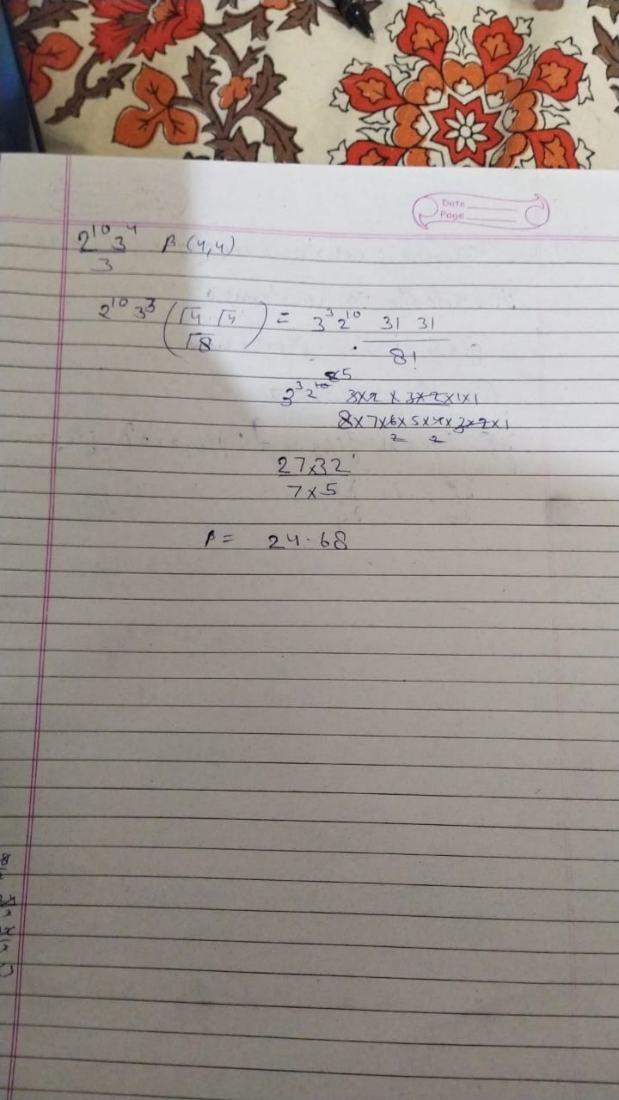 Date
Page
2^10 3^4 β (4,4)
3
2^10 3^3 (Γ4 Γ4 / Γ8) = 3^3 2^10 3! 3!
8!
3^3 2^10 5 3×2 × 3×2×1×1
8×7×6×5×4×3×2×1
2 2
27×32
7×5
β = 24.68